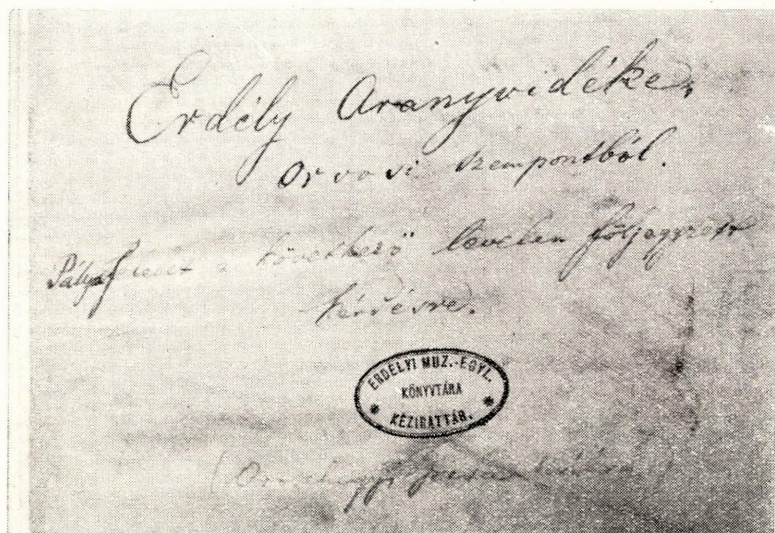 Erdély Aranyvidéke,
Orvosi szempontból.
Pályafelelet a következő levelen följegyzett
kérdésre.
ERDÉLYI MUZ.-EGYL.
KÖNYVTÁRA
KÉZIRATTÁR.